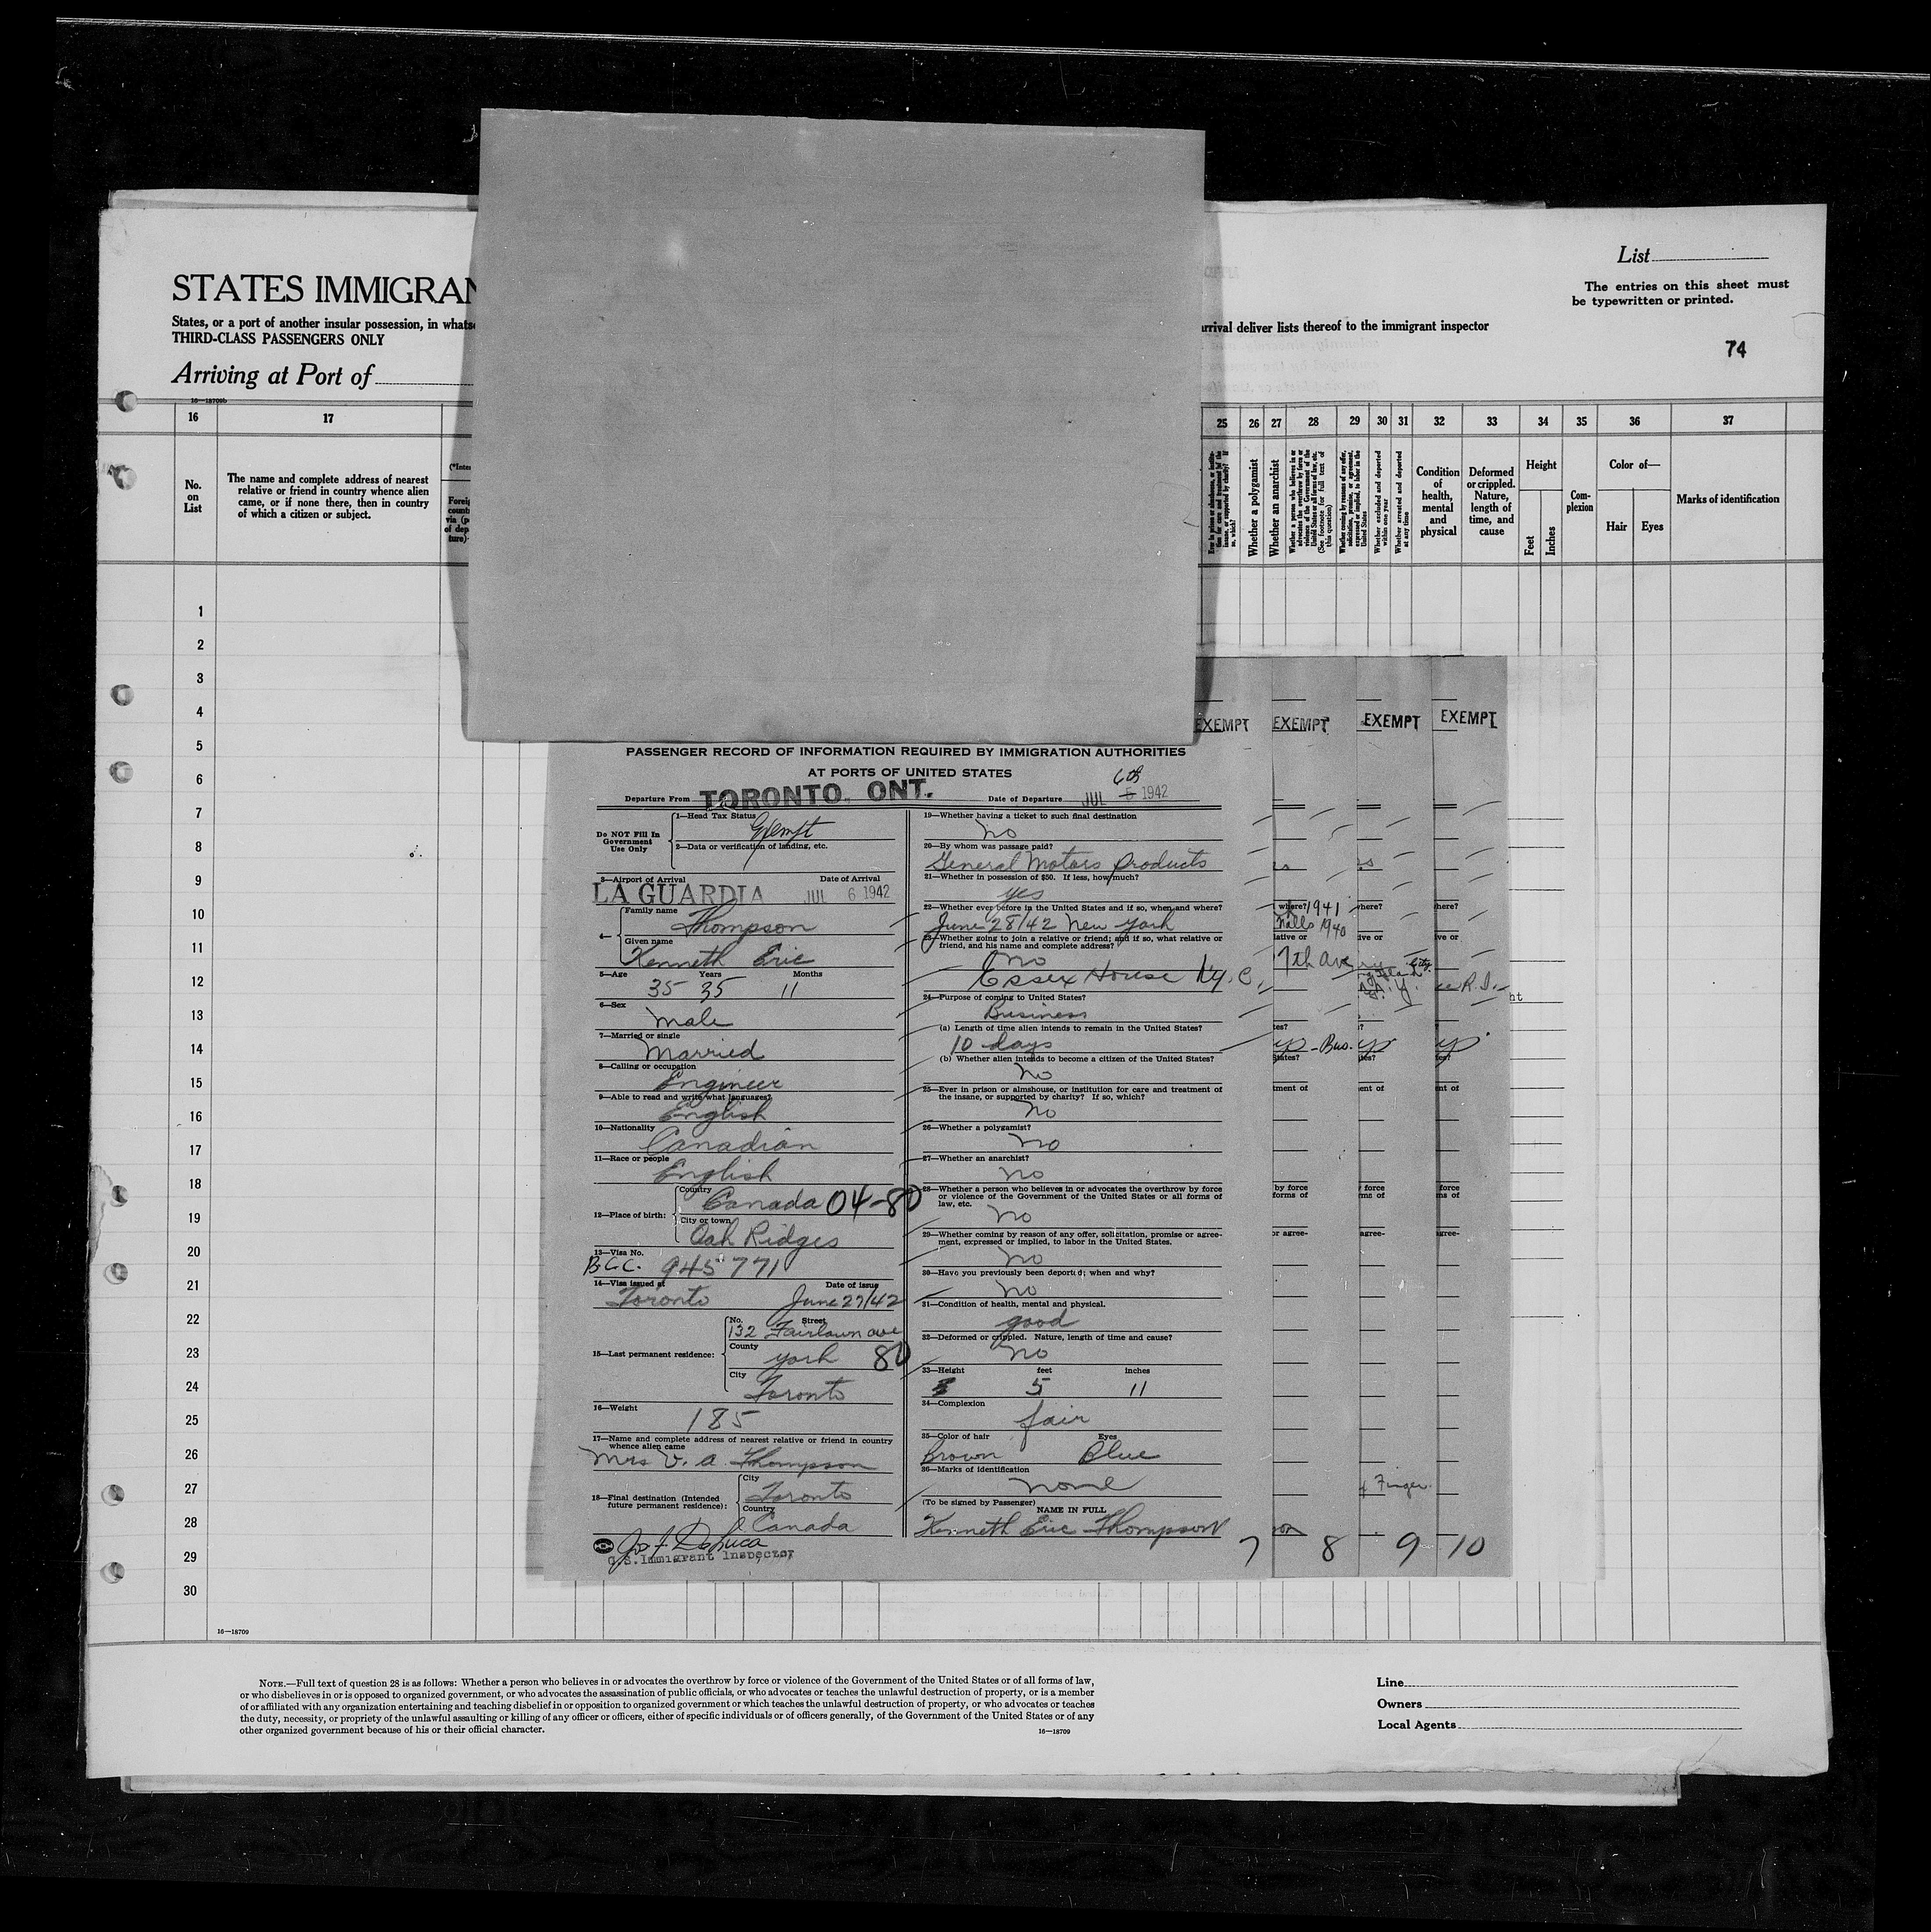 List
The entries on this sheet must
be typewritten or printed.
STATES IMMIGRAN
States, or a port of another insular possession, in whats
arrival deliver lists thereof to the immigrant inspector
THIRD-CLASS PASSENGERS ONLY
74
Arriving at Port of
16—18709b
16 17 25 26 27 28 29 30 31 32 33 34 35 36 37
No.
on
List
The name and complete address of nearest
relative or friend in country whence alien
came, or if none there, then in country
of which a citizen or subject.
Whether a polygamist
Whether an anarchist
Whether a person who believes in or
advocates the overthrow by force or
violence of the Government of the
United States or all forms of law, etc.
(See footnote for full text of
this question)
Whether coming by reasons of any offer,
solicitation, promise, or agreement,
expressed or implied, to labor in the
United States
Whether excluded and deported
within one year
Whether arrested and deported
at any time
Condition
of
health,
mental
and
physical
Deformed
or crippled.
Nature,
length of
time, and
cause
Height
Feet
Inches
Com-
plexion
Color of—
Hair Eyes
Marks of identification
1
2
3
4
5
6
7
8
9
10
11
12
13
14
15
16
17
18
19
20
21
22
23
24
25
26
27
28
29
30
16—18709
EXEMPT EXEMPT EXEMPT EXEMPT
PASSENGER RECORD OF INFORMATION REQUIRED BY IMMIGRATION AUTHORITIES
AT PORTS OF UNITED STATES
Departure From TORONTO, ONT. Date of Departure JUL 5 1942
6th
Do NOT Fill In
Government
Use Only
1—Head Tax Status
Exempt
2—Data or verification of landing, etc.
3—Airport of Arrival Date of Arrival
LA GUARDIA JUL 6 1942
4—
Family name
Thompson
Given name
Kenneth Eric
5—Age Years Months
35 35 11
6—Sex
Male
7—Married or single
Married
8—Calling or occupation
Engineer
9—Able to read and write what languages?
English
10—Nationality
Canadian
11—Race or people
English
12—Place of birth:
Country
Canada 04-80
City or town
Oak Ridges
13—Visa No.
B.C.C. 945771
14—Visa issued at Date of issue
Toronto June 27/42
15—Last permanent residence:
No. Street
132 Fairlawn ave
County
York 80
City
Toronto
16—Weight
185
17—Name and complete address of nearest relative or friend in country
whence alien came
Mrs V. A. Thompson
18—Final destination (Intended
future permanent residence):
City
Toronto
Country
Canada
U.S. Immigrant Inspector
19—Whether having a ticket to such final destination
no
20—By whom was passage paid?
General Motors Products
21—Whether in possession of $50. If less, how much?
yes
22—Whether ever before in the United States and if so, when and where?
June 28/42 New York
23—Whether going to join a relative or friend; and if so, what relative or
friend, and his name and complete address?
no
Essex House N.Y.C.
24—Purpose of coming to United States?
Business
(a) Length of time alien intends to remain in the United States?
10 days
(b) Whether alien intends to become a citizen of the United States?
no
25—Ever in prison or almshouse, or institution for care and treatment of
the insane, or supported by charity? If so, which?
no
26—Whether a polygamist?
no
27—Whether an anarchist?
no
28—Whether a person who believes in or advocates the overthrow by force
or violence of the Government of the United States or all forms of
law, etc.
no
29—Whether coming by reason of any offer, solicitation, promise or agree-
ment, expressed or implied, to labor in the United States.
no
30—Have you previously been deported; when and why?
no
31—Condition of health, mental and physical.
good
32—Deformed or crippled. Nature, length of time and cause?
no
33—Height feet inches
5 11
34—Complexion
fair
35—Color of hair Eyes
Brown Blue
36—Marks of identification
none
(To be signed by Passenger)
NAME IN FULL
Kenneth Eric Thompson
where? 1941 where? here?
Falls 1940
lative or ive or ve or
7th Ave
R.I.
tes? ?
Bus.
States? tes? es?
tment of ent of nt of
by force force force
forms of rms of ms of
or agree- agree- gree-
Finger
7 8 9 10
NOTE.—Full text of question 28 is as follows: Whether a person who believes in or advocates the overthrow by force or violence of the Government of the United States or of all forms of law,
or who disbelieves in or is opposed to organized government, or who advocates the assassination of public officials, or who advocates or teaches the unlawful destruction of property, or is a member
of or affiliated with any organization entertaining and teaching disbelief in or opposition to organized government or which teaches the unlawful destruction of property, or who advocates or teaches
the duty, necessity, or propriety of the unlawful assaulting or killing of any officer or officers, either of specific individuals or of officers generally, of the Government of the United States or of any
other organized government because of his or their official character.
16—18709
Line
Owners
Local Agents